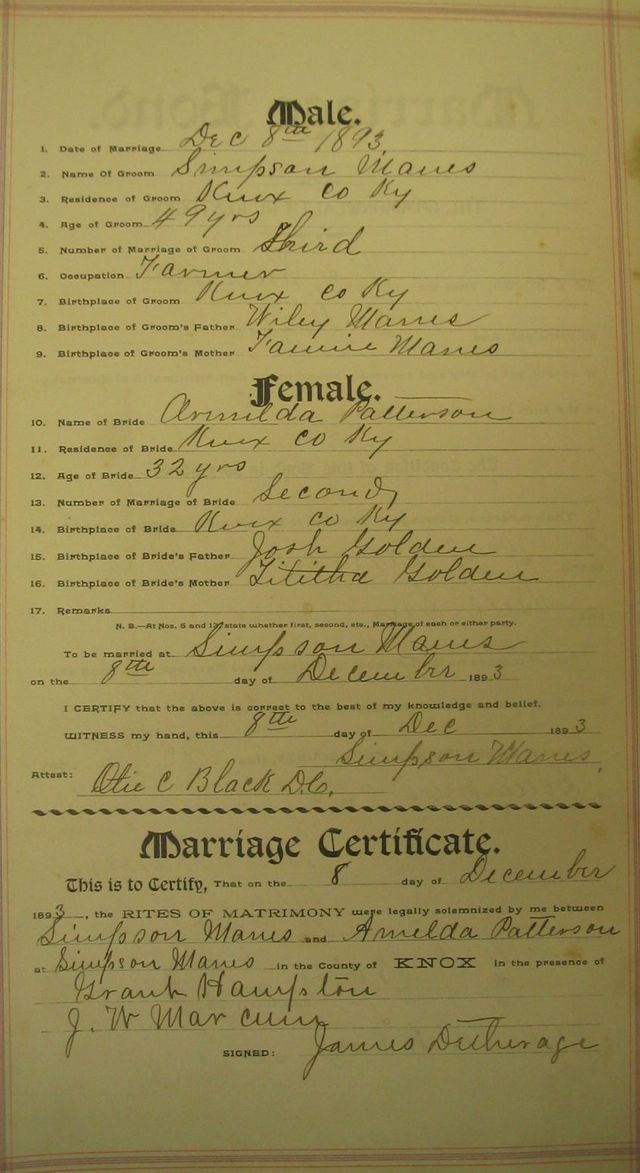 Male.
1. Date of Marriage Dec 8th 1893
2. Name Of Groom Simpson Manes
3. Residence of Groom Knox co Ky
4. Age of Groom 49 yrs
5. Number of Marriage of Groom Third
6. Occupation Farmer
7. Birthplace of Groom Knox co Ky
8. Birthplace of Groom's Father Wiley Manes
9. Birthplace of Groom's Mother Fannie Manes
Female.
10. Name of Bride Armilda Patterson
11. Residence of Bride Knox co Ky
12. Age of Bride 32 yrs
13. Number of Marriage of Bride Second
14. Birthplace of Bride Knox co Ky
15. Birthplace of Bride's Father Josh Golden
16. Birthplace of Bride's Mother Tititha Golden
17. Remarks
N. B.—At Nos. 5 and 13 state whether first, second, etc., Marriage of each or either party.
To be married at Simpson Manes
on the 8th day of December 1893
I CERTIFY that the above is correct to the best of my knowledge and belief.
WITNESS my hand, this 8th day of Dec 1893
Simpson Manes,
Attest: Otie C Black D.C.
Marriage Certificate.
This is to Certify, That on the 8 day of December
1893, the RITES OF MATRIMONY were legally solemnized by me between
Simpson Manes and Amelda Patterson
at Simpson Manes in the County of KNOX in the presence of
Grant Hampton
J. W Marcum
SIGNED: James Detherage